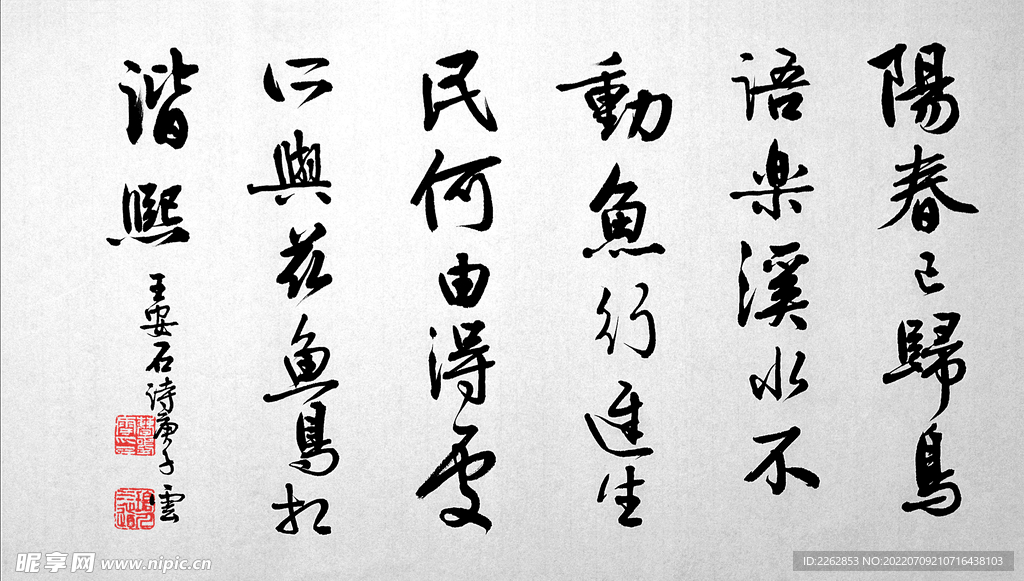 陽春已歸鳥
語樂溪水不
動魚行遲生
民何由得處
所與茲魚鳥相
諧熙
王安石詩庚子雲
昵享网 www.nipic.cn
ID:2262853 NO:20220709210716438103